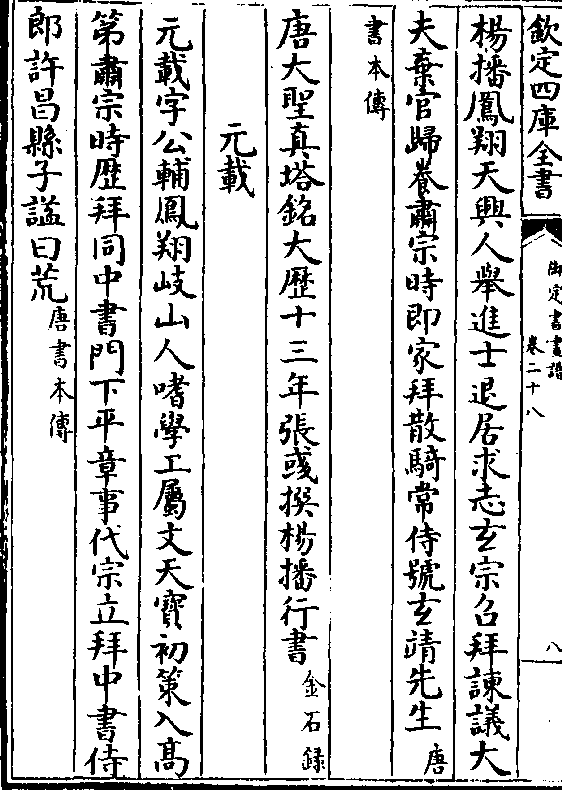 欽定四庫全書
御定書畫譜
卷二十八
八
楊播鳳翔天興人舉進士退居求志玄宗召拜諫議大
夫棄官歸養肅宗時即家拜散騎常侍號玄靖先生唐
書本傳
唐大聖真塔銘大歴十三年張彧撰楊播行書金石録
元載
元載字公輔鳳翔岐山人嗜學工屬文天寶初策入高
第肅宗時歴拜同中書門下平章事代宗立拜中書侍
郎許昌縣子謚曰荒唐書本傳